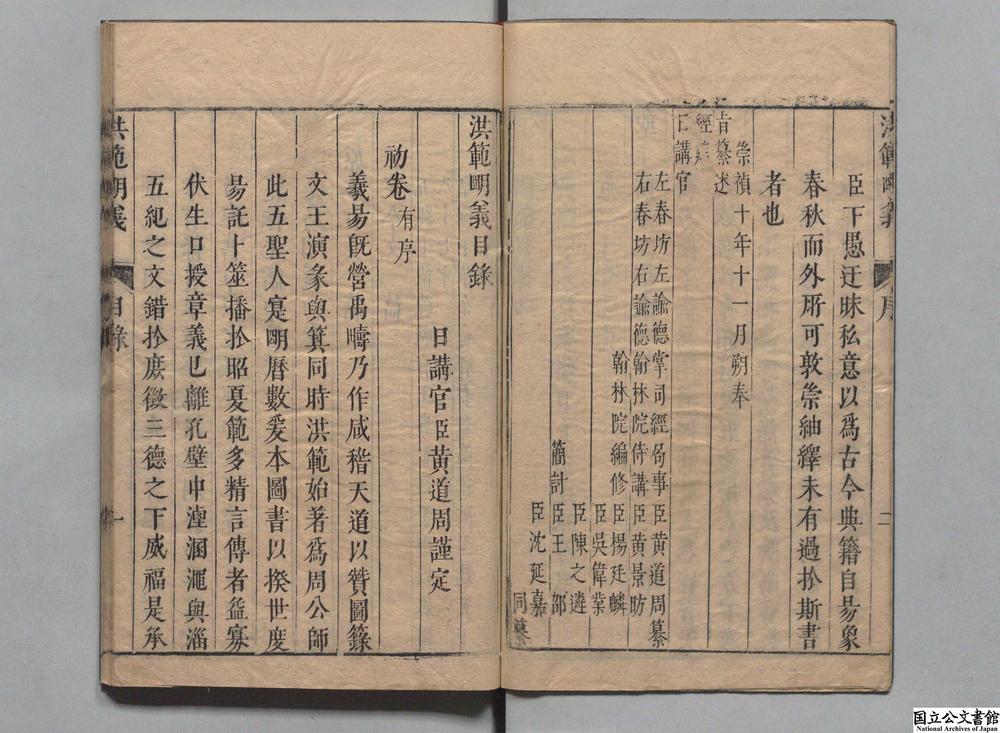 洪範明義 序 二
臣下愚迂昧私意以爲古今典籍自昜象
春秋而外所可敦崇紬繹未有過於斯書
者也
崇禎十年十一月朔奉
旨纂述
經筵
日講官
左春坊左諭德掌司經局事臣黃道周纂
右春坊右諭德翰林院侍講臣黃景昉
翰林院編修臣楊廷麟
臣吳偉業
臣陳之遴
簡討臣王 郚
臣沈延嘉同纂
洪範明義目錄
日講官臣黃道周謹定
初卷有序
羲昜旣營禹疇乃作咸稽天道以贊圖籙
文王演彖與箕同時洪範始著爲周公師
此五聖人寔明曆數爰本圖書以揆世度
昜託卜筮播於昭夏範多精言傳者益寡
伏生口授章義已離孔壁中湮溷澠與淄
五紀之文錯於庶徵三德之下威福是承
洪範明義 目錄 一
国立公文書館
National Archives of Japan